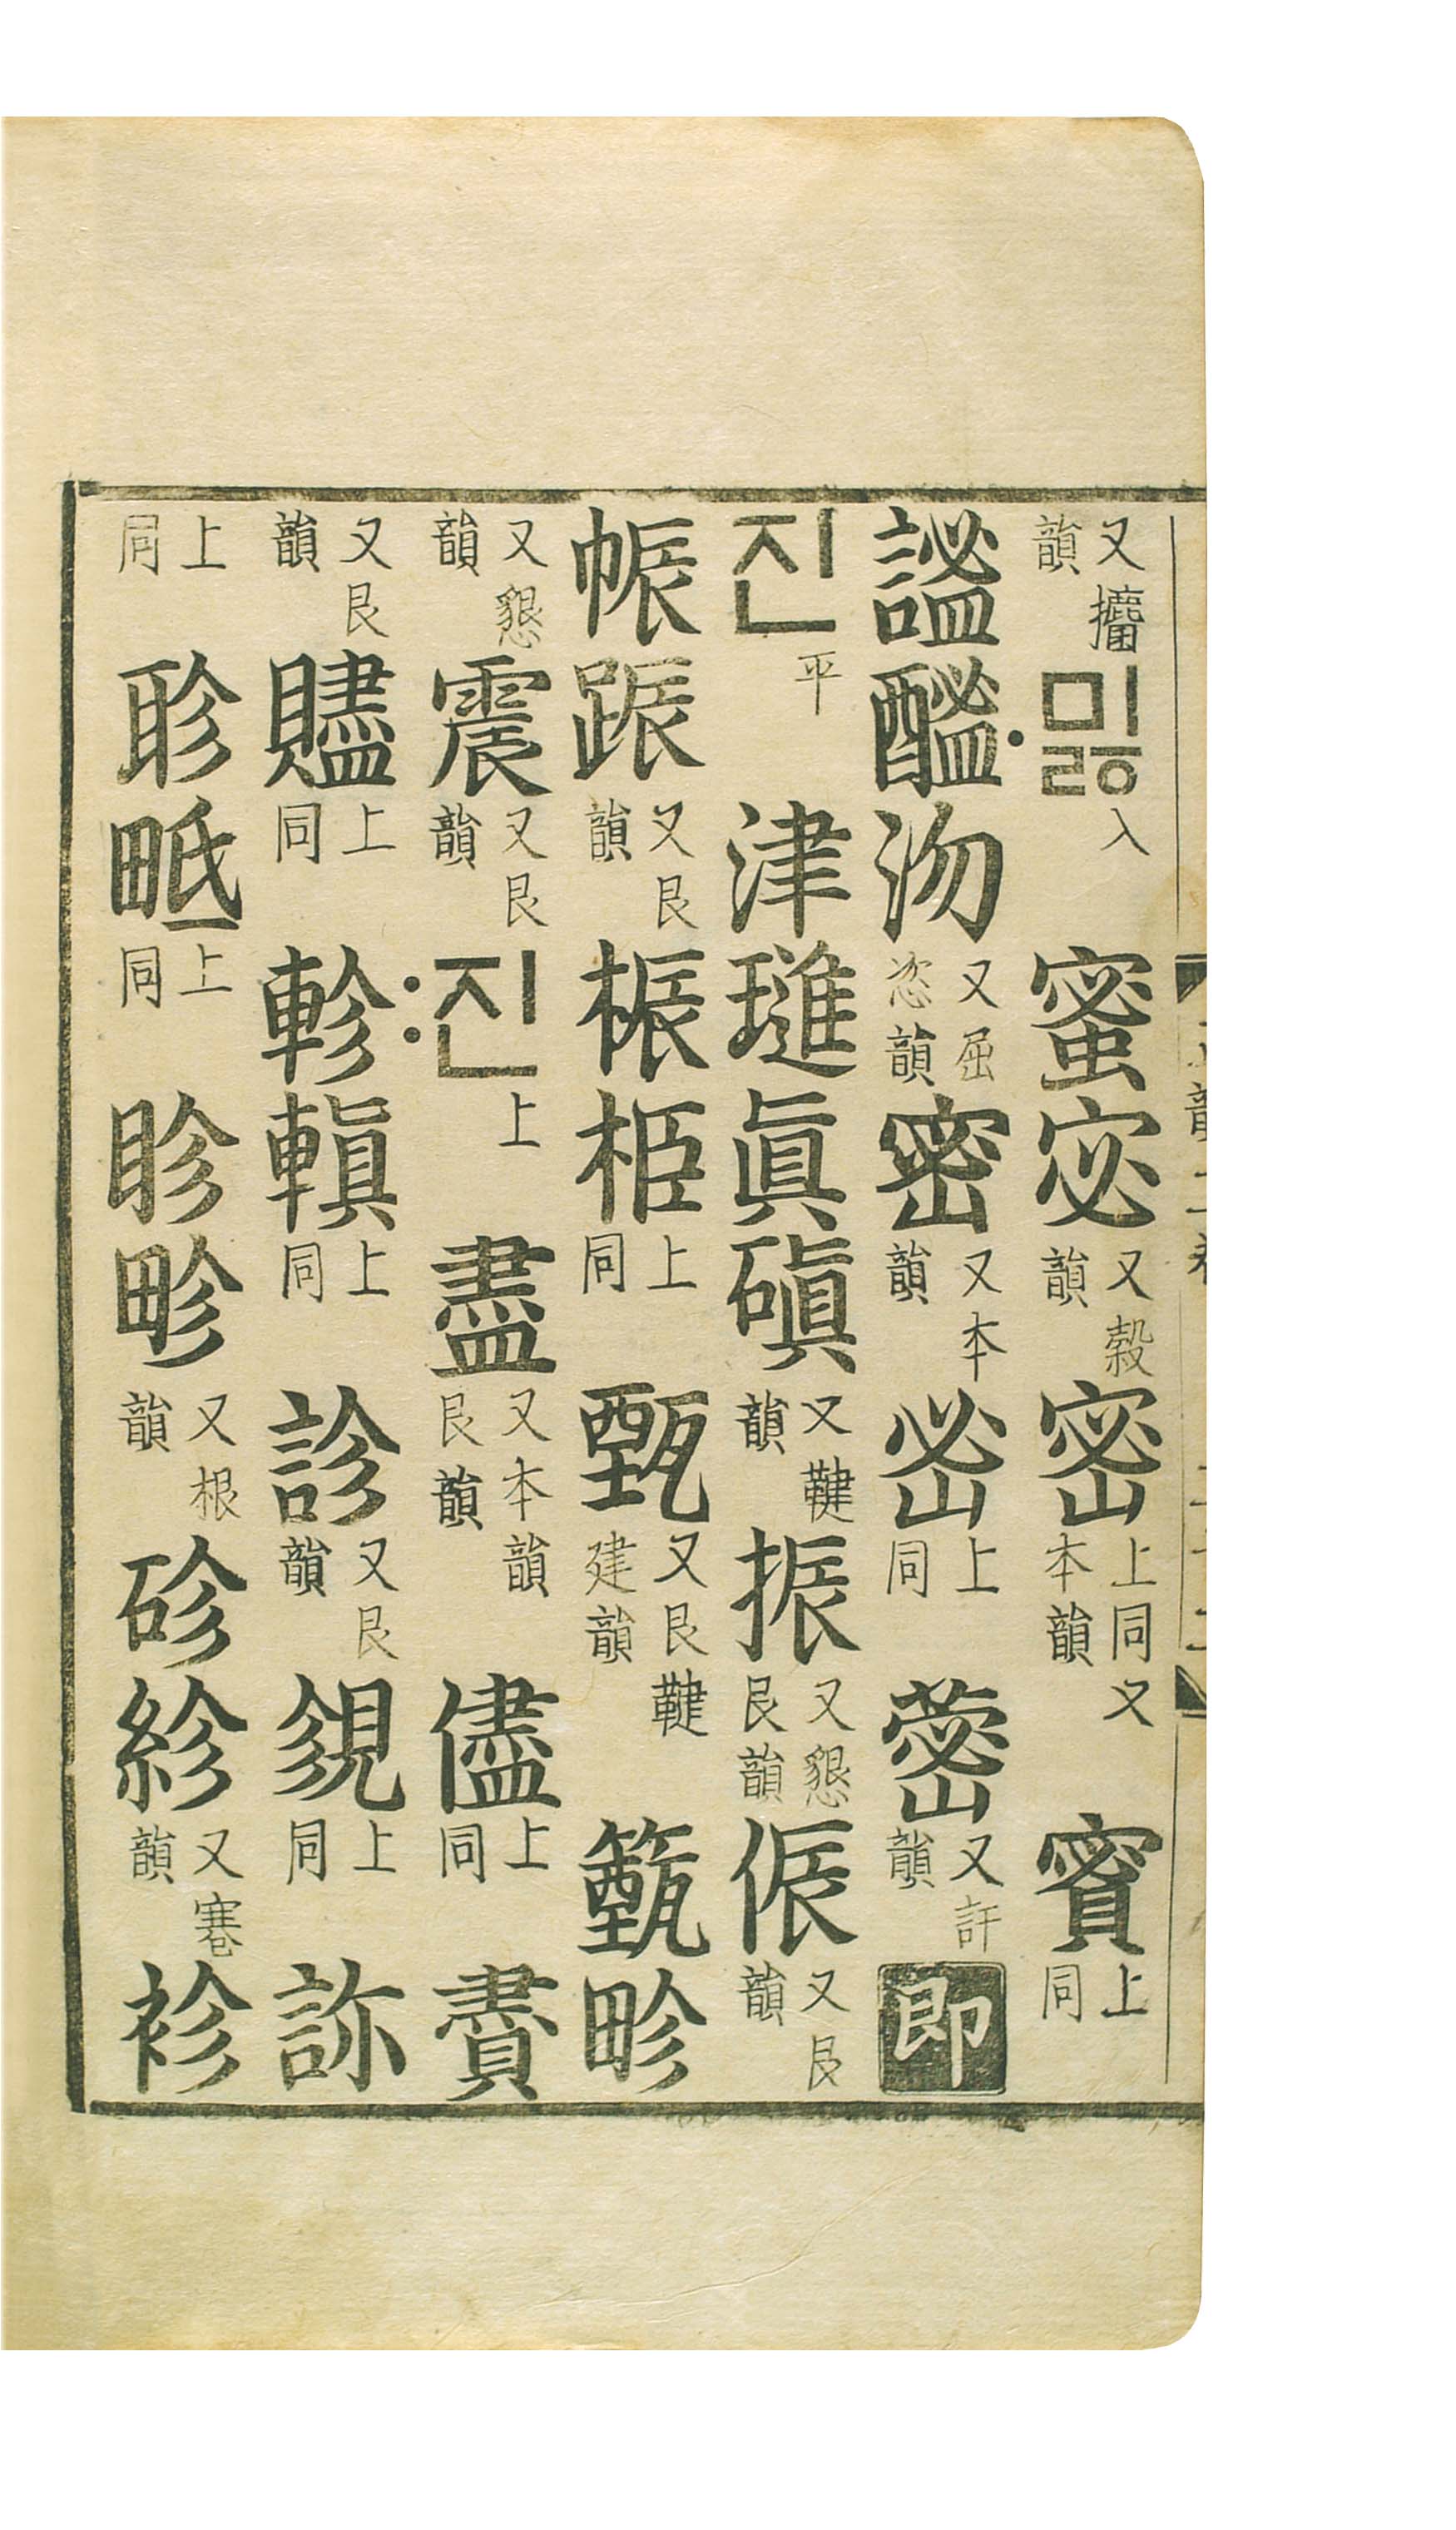 又攟韻밇入蜜宓又穀韻密上同又本韻賔上同
謐醯沕又屈恣韻密又本韻宻上同蔤又訐韻即
진平津璡眞磌又鞬韻振又懇艮韻侲又艮韻
帪跈又艮韻桭柜上同甄又艮鞬建韻籈畛
又懇韻震又艮韻진上盡又本韻艮韻儘上同賮
又艮韻贐上同軫轃上同診又艮韻覙上同
上同聄畛上同眕畛又根韻砛紾又寋韻袗